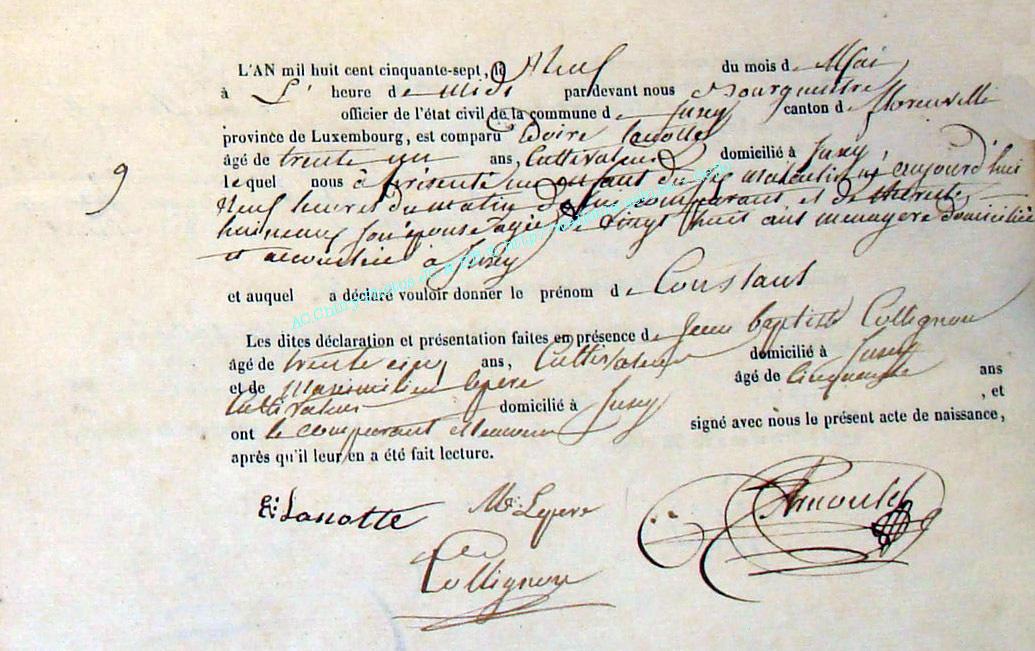 L'AN mil huit cent cinquante-sept, le Neuf du mois de Mai
à L' heure de midi par devant nous Bourgmestre
officier de l'état civil de la commune de Juzey canton de
province de Luxembourg, est comparu lanotte
âgé de trente un ans, Cultivateur domicilié à Juzey,
lequel nous à présenté un enfant du sexe masculin né aujourd'hui
9
Neuf heures du matin de lui comparant et de
son épouse agée de vingt huit ans menagere domiciliée
et accouchée à Juzey
et auquel a déclaré vouloir donner le prénom de Constant
Les dites déclaration et présentation faites en présence de Jean baptiste Collignon
âgé de trente cinq ans, Cultivateur domicilié à Juzey
et de Maximilien lepere âgé de Cinquante ans
Cultivateur domicilié à Juzey , et
ont le comparant et temoins signé avec nous le présent acte de naissance,
après qu'il leur en a été fait lecture.
E: Lanotte Mn: Lepere
Collignon